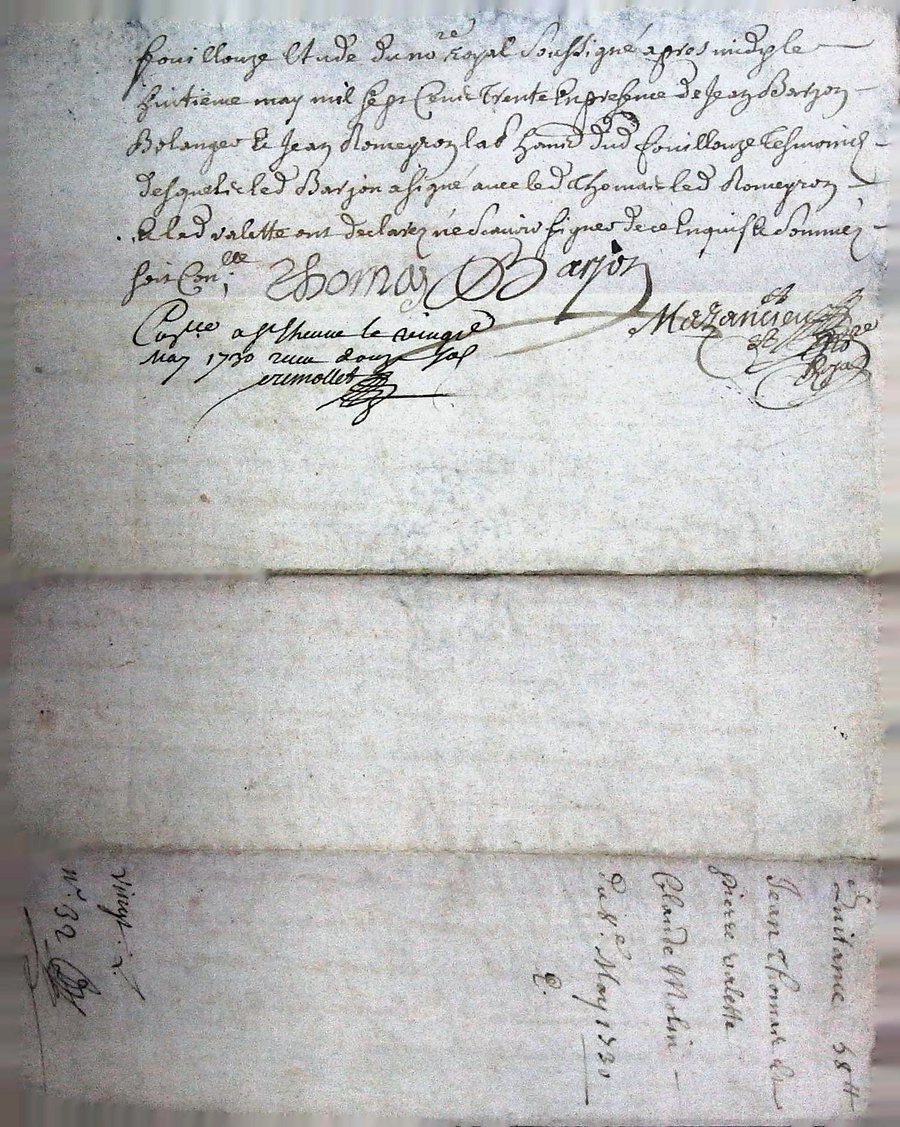 fouillouze Etude du no.re royal soussigné apres midy le
huitieme may mil sept Cents Trente En presence de Jean Barjon
Bolanger & Jean Romeyron lab. dud fouillouze Tesmoins
desquels led Barjon a signé avec led Thomas led Romeyron
& led valette ont declarez ne scavoir signer de ce Enquis & Sommez
soit Con.lle
Thomas Barjon
Mazancieu
no.re
Royal
a St Etienne le vingt
May 1730 receu douze sols
Quitance 58 tt
Jean Thomas &
pierre valette
Claude Molin
du 8.e May 1730
vingt
n.o 32